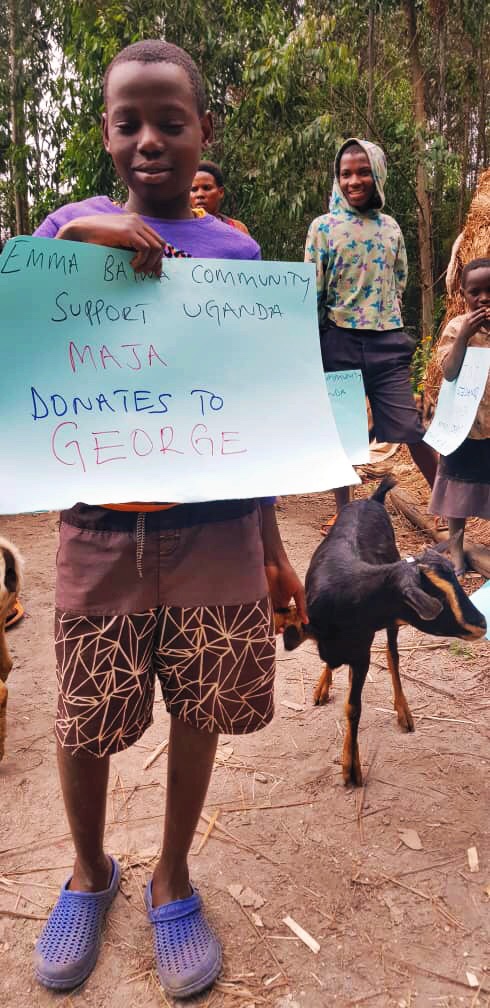 EMMA BATWA COMMUNITY
SUPPORT UGANDA
MAJA
DONATES TO
GEORGE